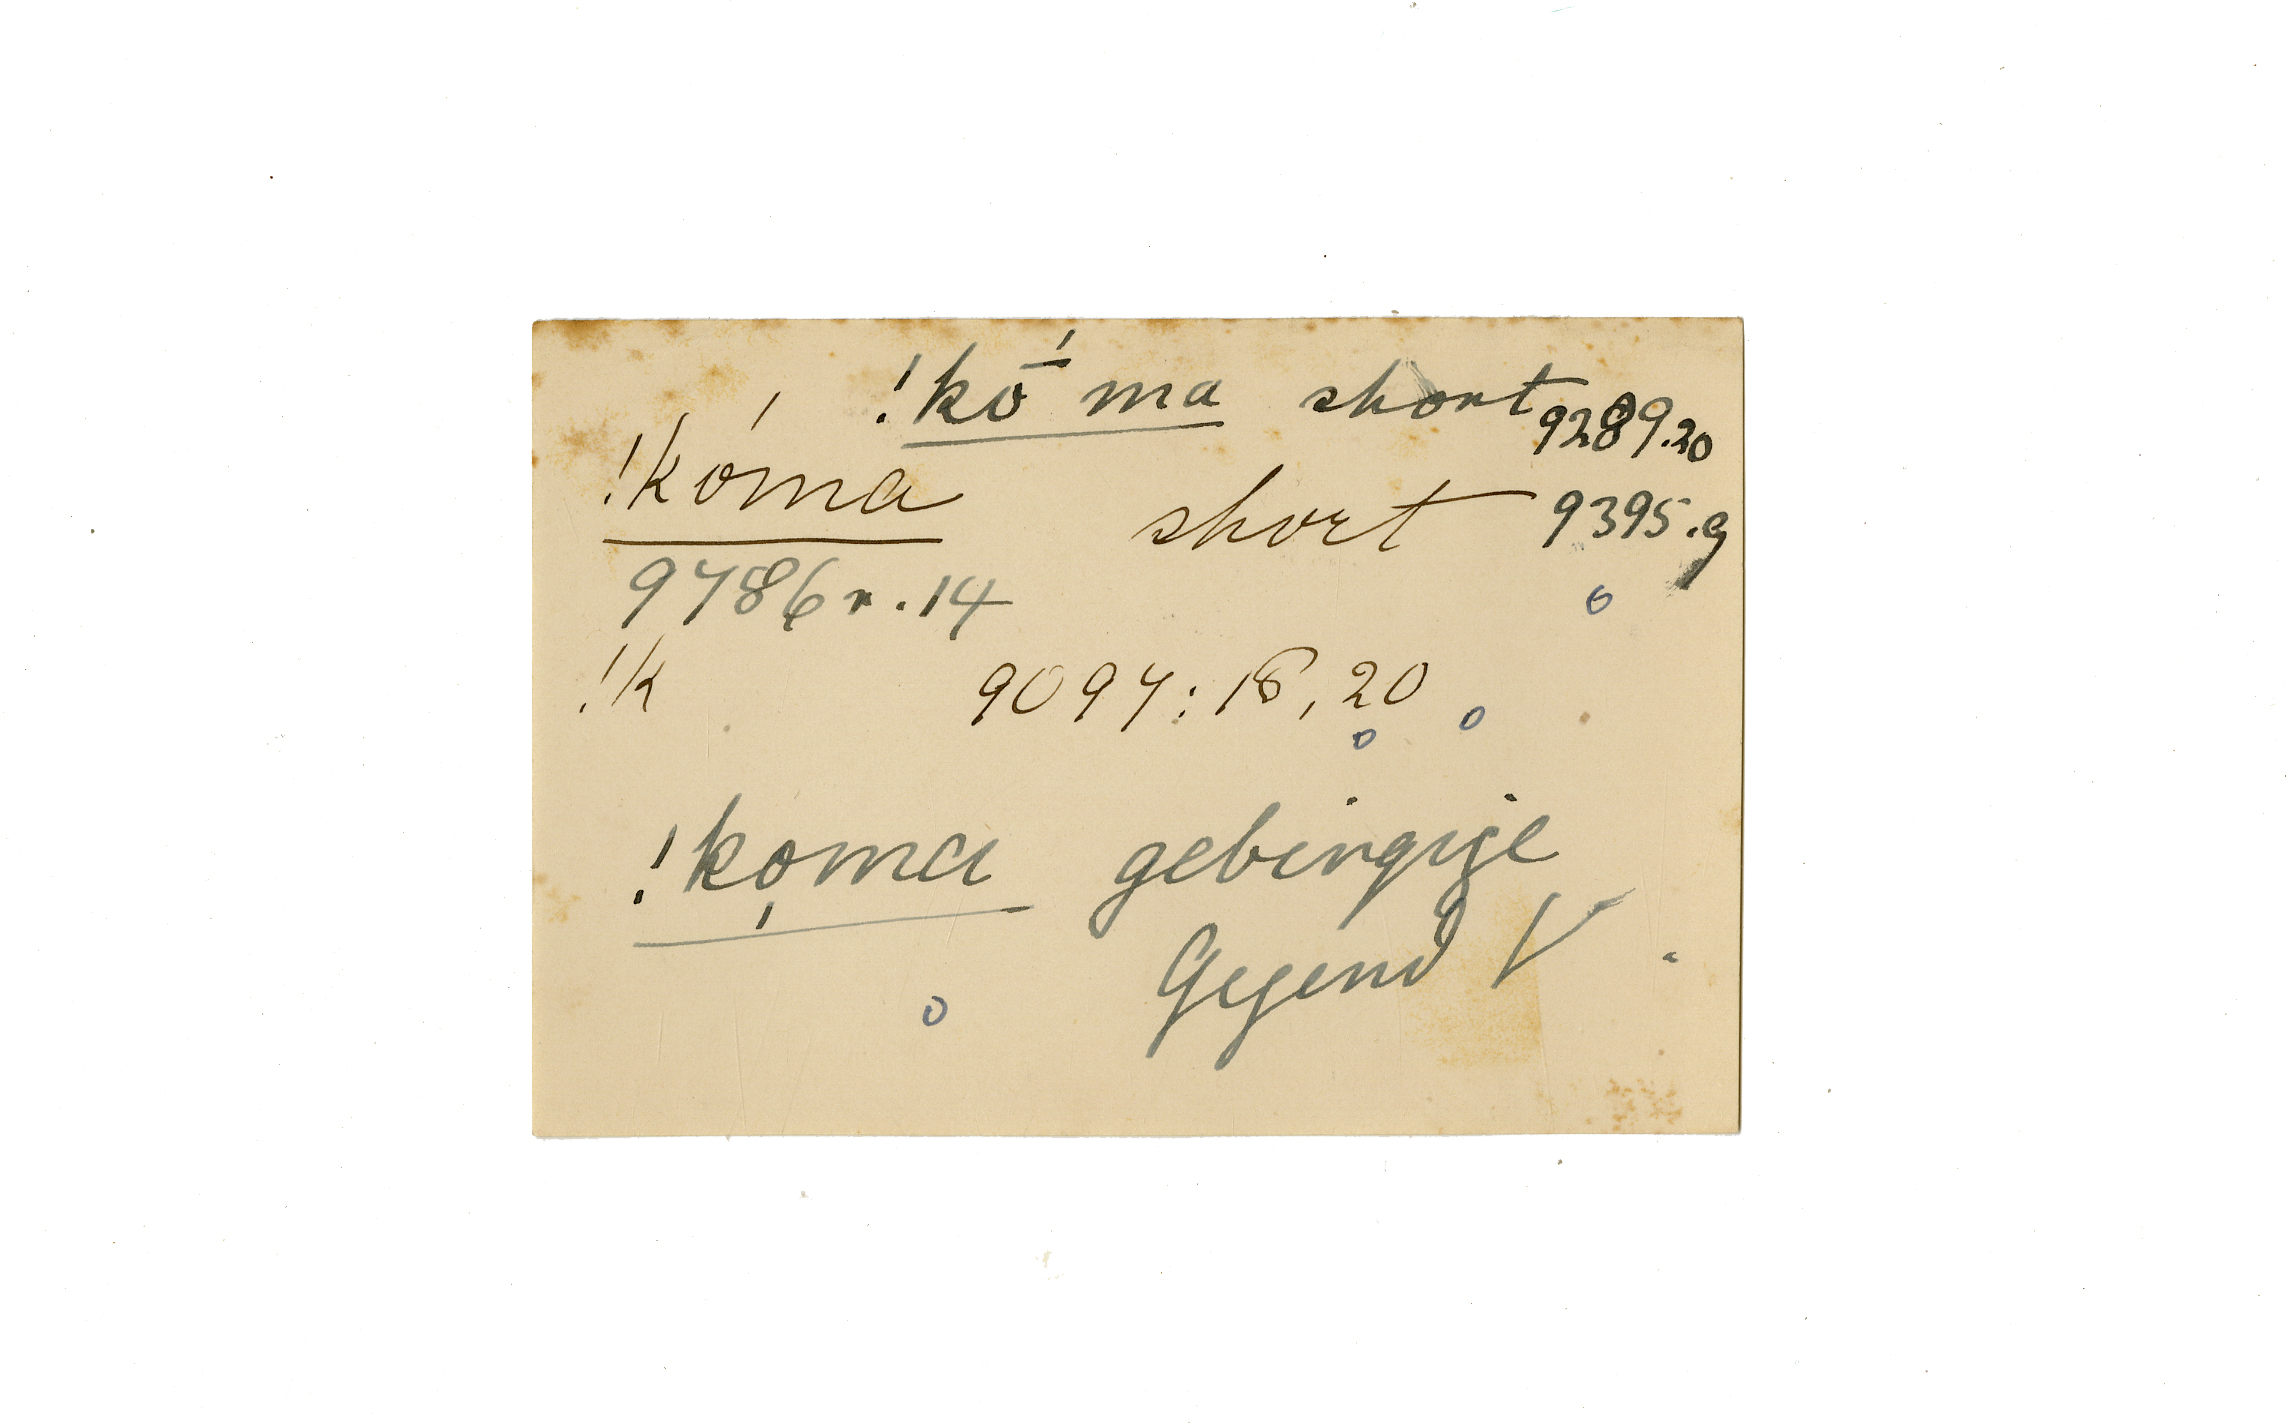 !kṓ ma short 9289.20
!kóma short 9395.9
9786r.14
!k 9097:18,20
!ko̗ma gebirgige
Gegend V